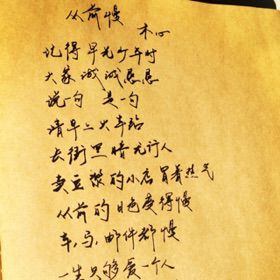 从前慢
木心
记得早先少年时
大家诚诚恳恳
说一句 是一句
清早上火车站
长街黑暗无行人
卖豆浆的小店冒着热气
从前的日色变得慢
车,马,邮件都慢
一生只够爱一个人